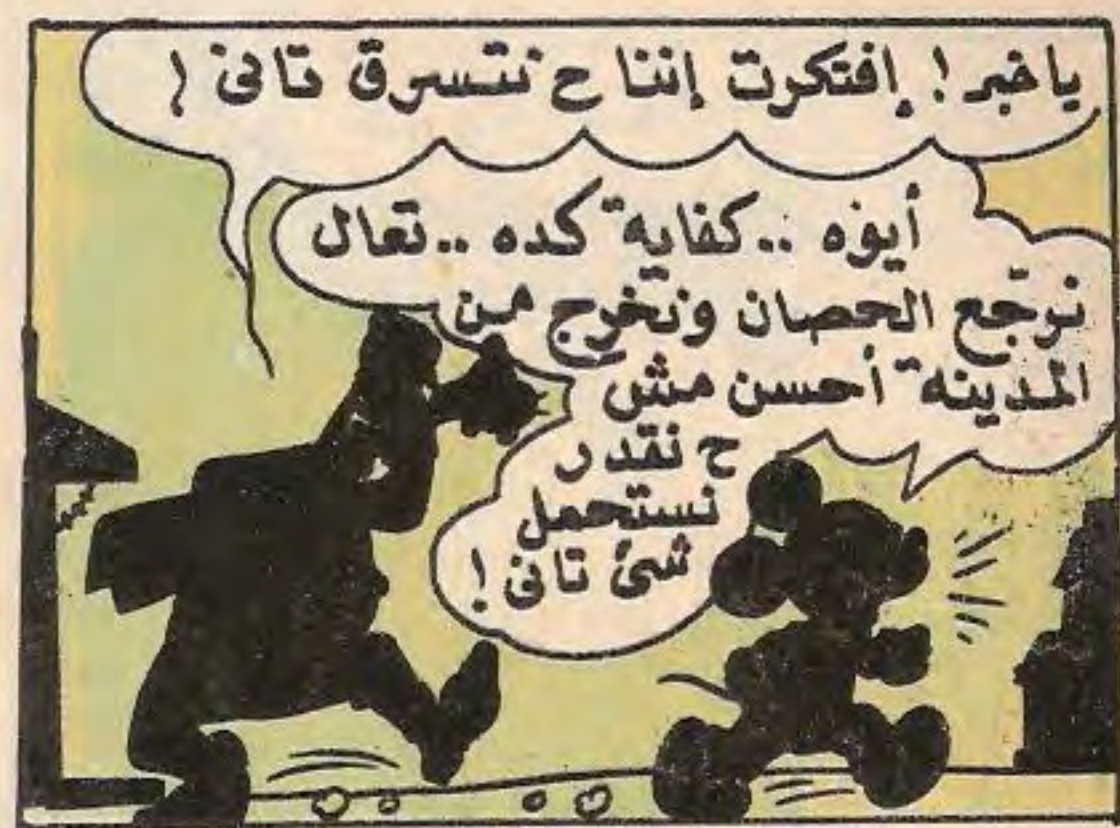 ياخبر! إفتكرت إننا ح نتسرق تانى!
أيوه .. كفايه كده .. تعال
نرجّع الحصان ونخرج من
المدينه أحسن مش
ح نقدر
نستحمل
شئ تانى!